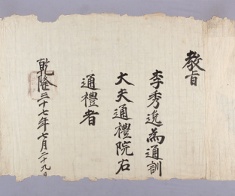 教旨
李秀逸為通訓
大夫通禮院右
通禮者
乾隆三十七年七月二十九日